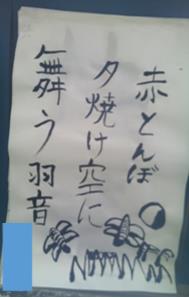 赤とんぼ
夕焼け空に
舞う羽音